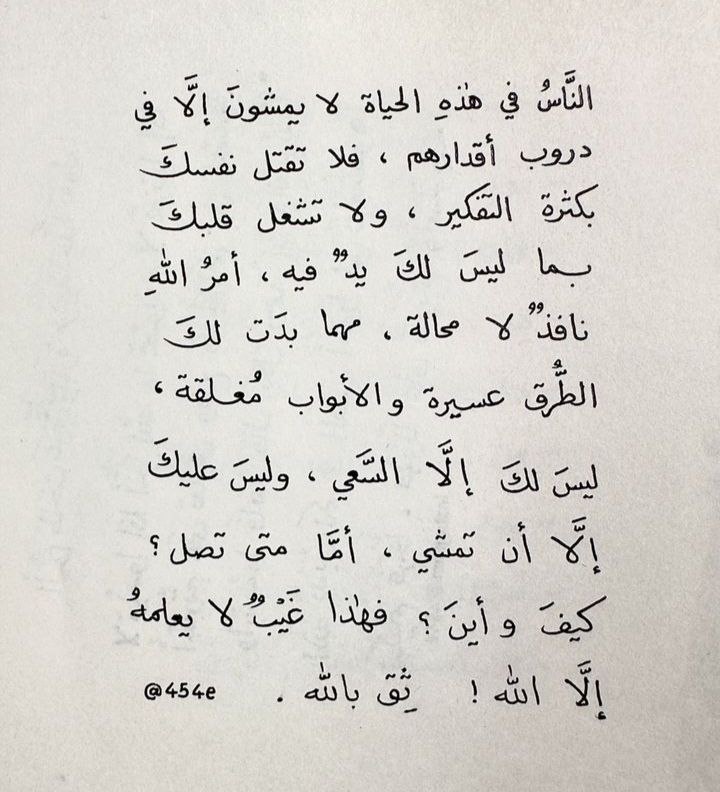 النَّاسُ في هٰذهِ الحياة لا يمشونَ إلَّا في
دروب أقدارهم ، فلا تقتل نفسكَ
بكثرة التفكير ، ولا تشغل قلبكَ
بما ليسَ لكَ يدٌ فيه ، أمرُ اللهِ
نافذٌ لا محالة ، مهما بدَت لكَ
الطُّرق عسيرة والأبواب مُغلقة ،
ليسَ لكَ إلَّا السَّعي ، وليسَ عليكَ
إلَّا أن تمشي ، أمَّا متى تصل ؟
كيفَ وأينَ ؟ فهٰذا غَيْبٌ لا يعلمهُ
إلَّا الله ! ثِق بالله . @454e